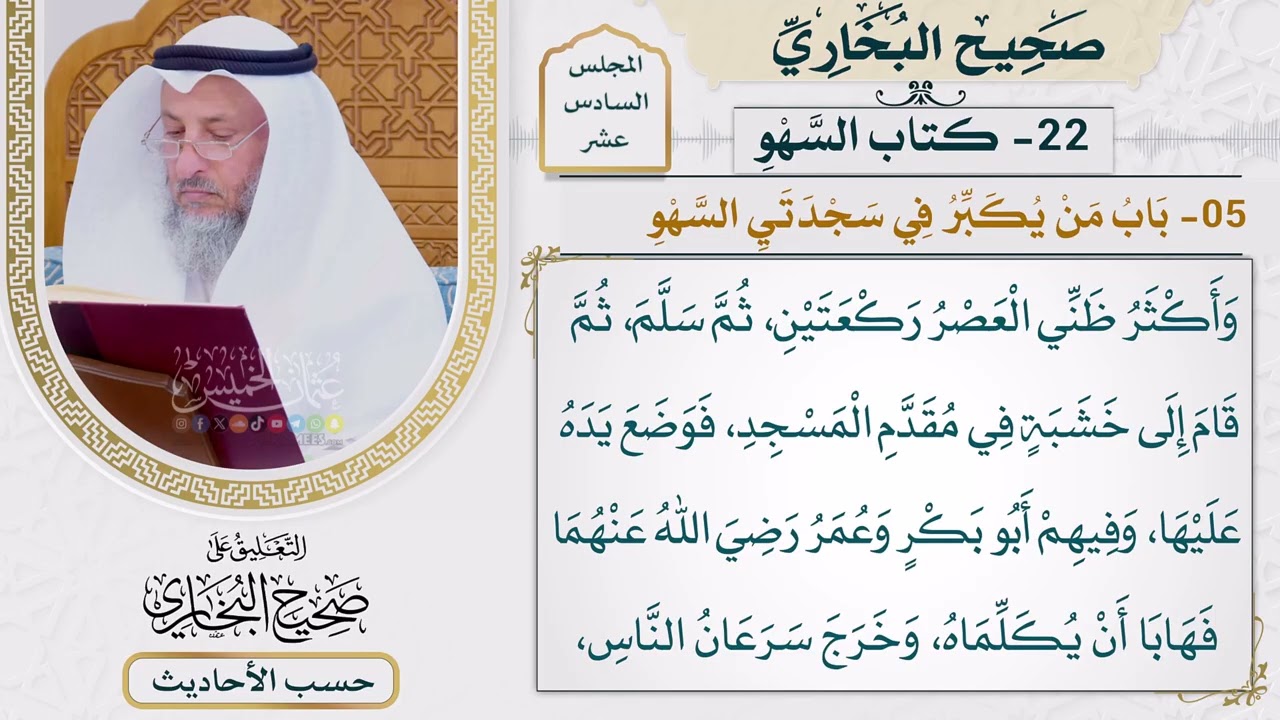 صَحِيح البُخَارِيِّ
المجلس
السادس
عشر
22- كتاب السَّهْوِ
05- بَابُ مَنْ يُكَبِّرُ فِي سَجْدَتَيِ السَّهْوِ
وَأَكْثَرُ ظَنِّي الْعَصْرُ رَكْعَتَيْنِ، ثُمَّ سَلَّمَ، ثُمَّ
قَامَ إِلَى خَشَبَةٍ فِي مُقَدَّمِ الْمَسْجِدِ، فَوَضَعَ يَدَهُ
عَلَيْهَا، وَفِيهِمْ أَبُو بَكْرٍ وَعُمَرُ رَضِيَ اللهُ عَنْهُمَا
فَهَابَا أَنْ يُكَلِّمَاهُ، وَخَرَجَ سَرَعَانُ النَّاسِ،
عثمان الخميس
التَّعْلِيقُ عَلَى
صَحِيح البُخَارِي
حسب الأحاديث